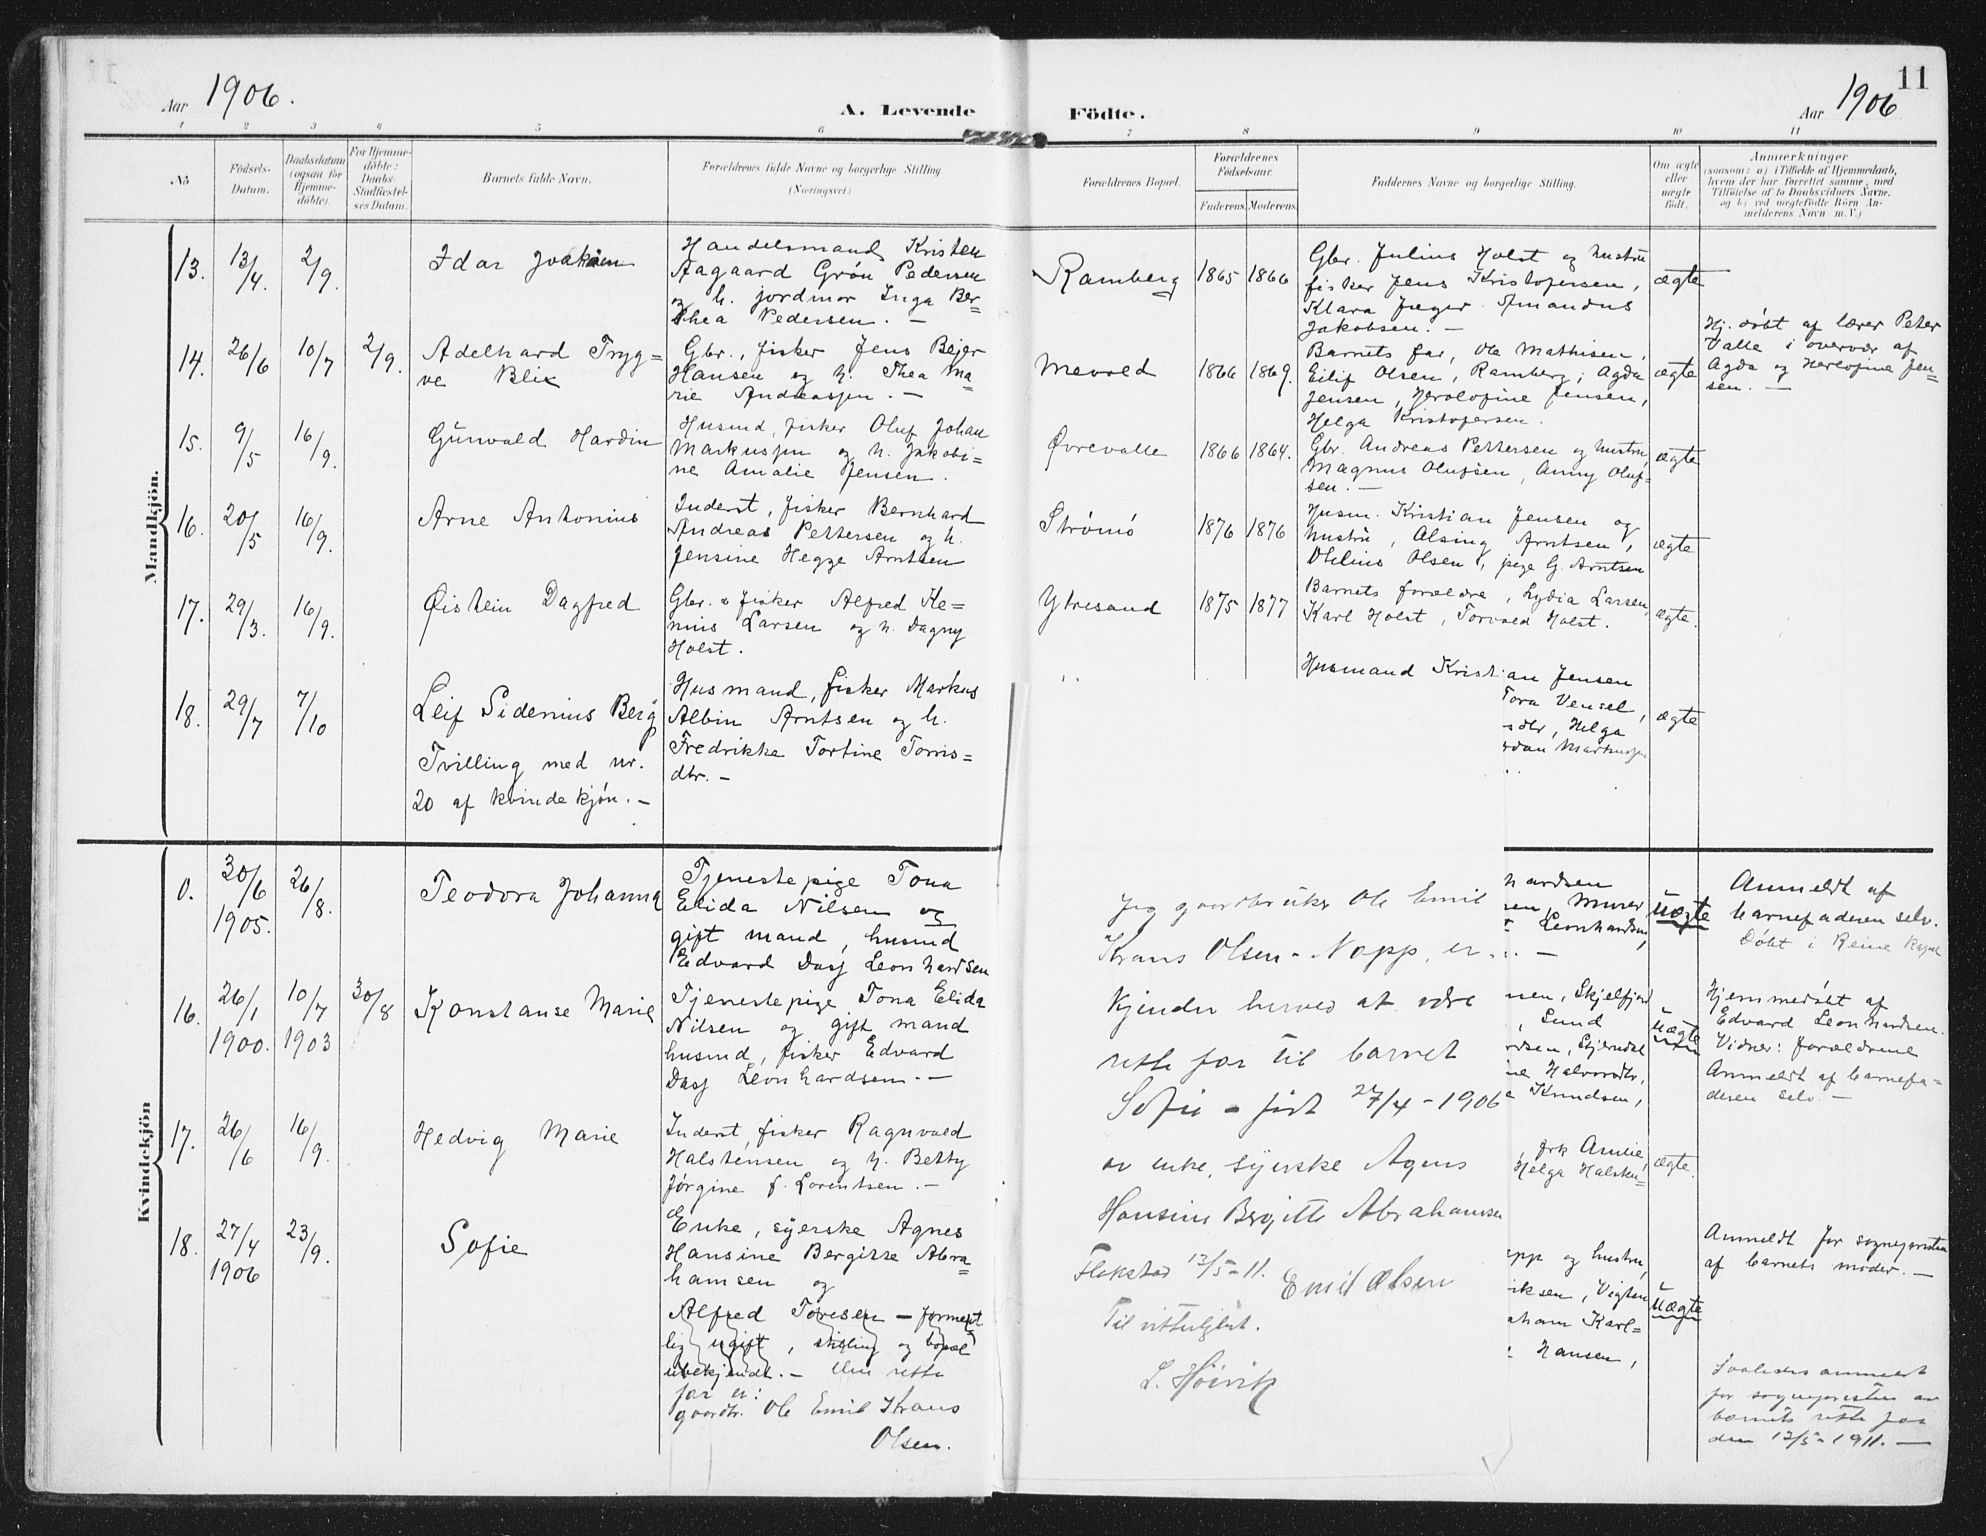 Aar 1906.
A. Levende Födte.
Aar 1906
11
1 2 3 4 5 6 7 8 9 10 11
No
Födsels-
Datum.
Daabsdatum
(ogsaa for
Hjemme-
döbte).
For Hjemme-
döbte:
Daabs-
Stadfæstel-
ses Datum.
Barnets fulde Navn.
Forældrenes fulde Navne og borgerlige Stilling
(Næringsvei.)
Forældrenes Bopæl.
Forældrenes
Födselsaar.
Faderens. Moderens.
Faddernes Navne og borgerlige Stilling.
Om ægte
eller
uægte
födt.
Anmærkninger
(saasom: a) i Tilfælde af Hjemmedaab,
hvem der har forrettet samme, med
Tilföielse af to Daabsvidners Navne,
og b) ved uægtefödte Börn An-
melderens Navn m. V.)
Mandkjön.
13. 13/4. 2/9. Idar Joakim
Handelsmand Kristen
Aagaard Grön Pedersen
og h. jordmor Inga Ber-
thea Pedersen. —
Ramberg 1865 1866
Gbr. Julius Holst og hustru
fisker Jens Kristofersen,
Klara Jæger. Amandus
Jakobsen. —
ægte
14. 26/6 10/7 2/9. Adelhard Tryg=
ve Blix
Gbr., fisker Jens Bejer
Hansen og h. Thea Ma=
rie Andreassen. —
Mevold 1866 1869.
Barnets far, Ole Mathisen,
Eilif Olsen, Ramberg; Agda
Jensen, Herlofine Jensen,
Helga Kristofersen.
ægte
Hj. döbt af lærer Peter
Valle i overvær af
Agda og Herlofine Jen=
sen. —
15. 9/5 16/9. Gunvald Hardin
Husmd, fisker Oluf Johan
Markussen og h. Jakobi=
ne Amalie Jensen.
Øvrevalle 1866 1864.
Gbr. Andreas Pettersen og hustru,
Magnus Olufsen, Anny Oluf=
sen. —
ægte
16. 20/5 16/9. Arne Antonius
Inderst, fisker Bernhard
Andreas Pettersen og h.
Jensine Hegge Arntsen
Strömö 1876 1876
Husm. Kristian Jensen og
hustru, Alsing Arntsen,
Othlius Olsen, pige G. Arntsen
ægte
17. 29/3. 16/9. Øistein Dagfred
Gbr. & fisker Alfred Ke=
nius Larsen og h. Dagny
Holst.
Ytresand 1875 1877
Barnets forældre, Lydia Larsen,
Karl Holst, Torvald Holst.
ægte.
18. 29/7 7/10 Leif Sidenius Berg
Tvilling med nr.
20 af kvindekjön. —
Husmand, fisker Markus
Albin Arntsen og h.
Fredrikke Tortine Torris=
dtr. —
Husmand Kristian Jensen
Tora Vensel,
Helga
Markussen
ægte
Kvindekjön
0. 30/6 1905. 26/8. Teodora Johanna
Tjenestepige Tona
Elida Nilsen og
gift mand, husmd
Edvard Dasj Leonhardsen
hardsen
sen, Murer
Leonhardsen,
uægte
Anmeldt af
barnefaderen selv.
Döbt i Reine kapel
16. 26/1 1900. 10/7 1903 30/8 Konstanse Marie
Tjenestepige Tona Elida
Nilsen og gift mand
husmd, fisker Edvard
Dasj Leonhardsen. —
nsen, Skjelfjord
, Sund
rdsen, Stjerndal
ne Halvorsdtr,
a Knudsen,
uægte
Hjemmedöbt af
Edvard Leonhardsen.
Vidner: forældrene
Anmeldt af barnefa=
deren selv. —
17. 26/6 16/9. Hedvig Marie
Inderst, fisker Ragnvald
Halstensen og h. Betty
Jörgine f. Lorentsen. —
, frk Amelie,
Helga Halsten=
ægte.
18. 27/4 1906 23/9. Sofie
Enke, syerske Agnes
Hansine Bergitte Abra=
hamsen og
Alfred Toresen — forment
lig ugift, stilling og bopæl
ubekjendt. — Den rette
far er:
gaardbr. Ole Emil Kraus
Olsen.
Jeg gaardbruker Ole Emil
Kraus Olsen - Napp, er-
kjender herved at være
rette far til barnet
Sofie - født 27/4 - 1906
av enke, syerske Agnes
Hansine Bergitte Abrahamsen
Flakstad 12/5 - 11. Emil Olsen
Til vitterlighet.
L. Höivik
app og hustru,
riksen, Vigten
aham Karl=
Hansen,
uægte
Anmeldt for sognepresten
af barnets moder. —
Saaledes anmeldt
for sognepresten av
barnets rette far
den 12/5 - 1911. —